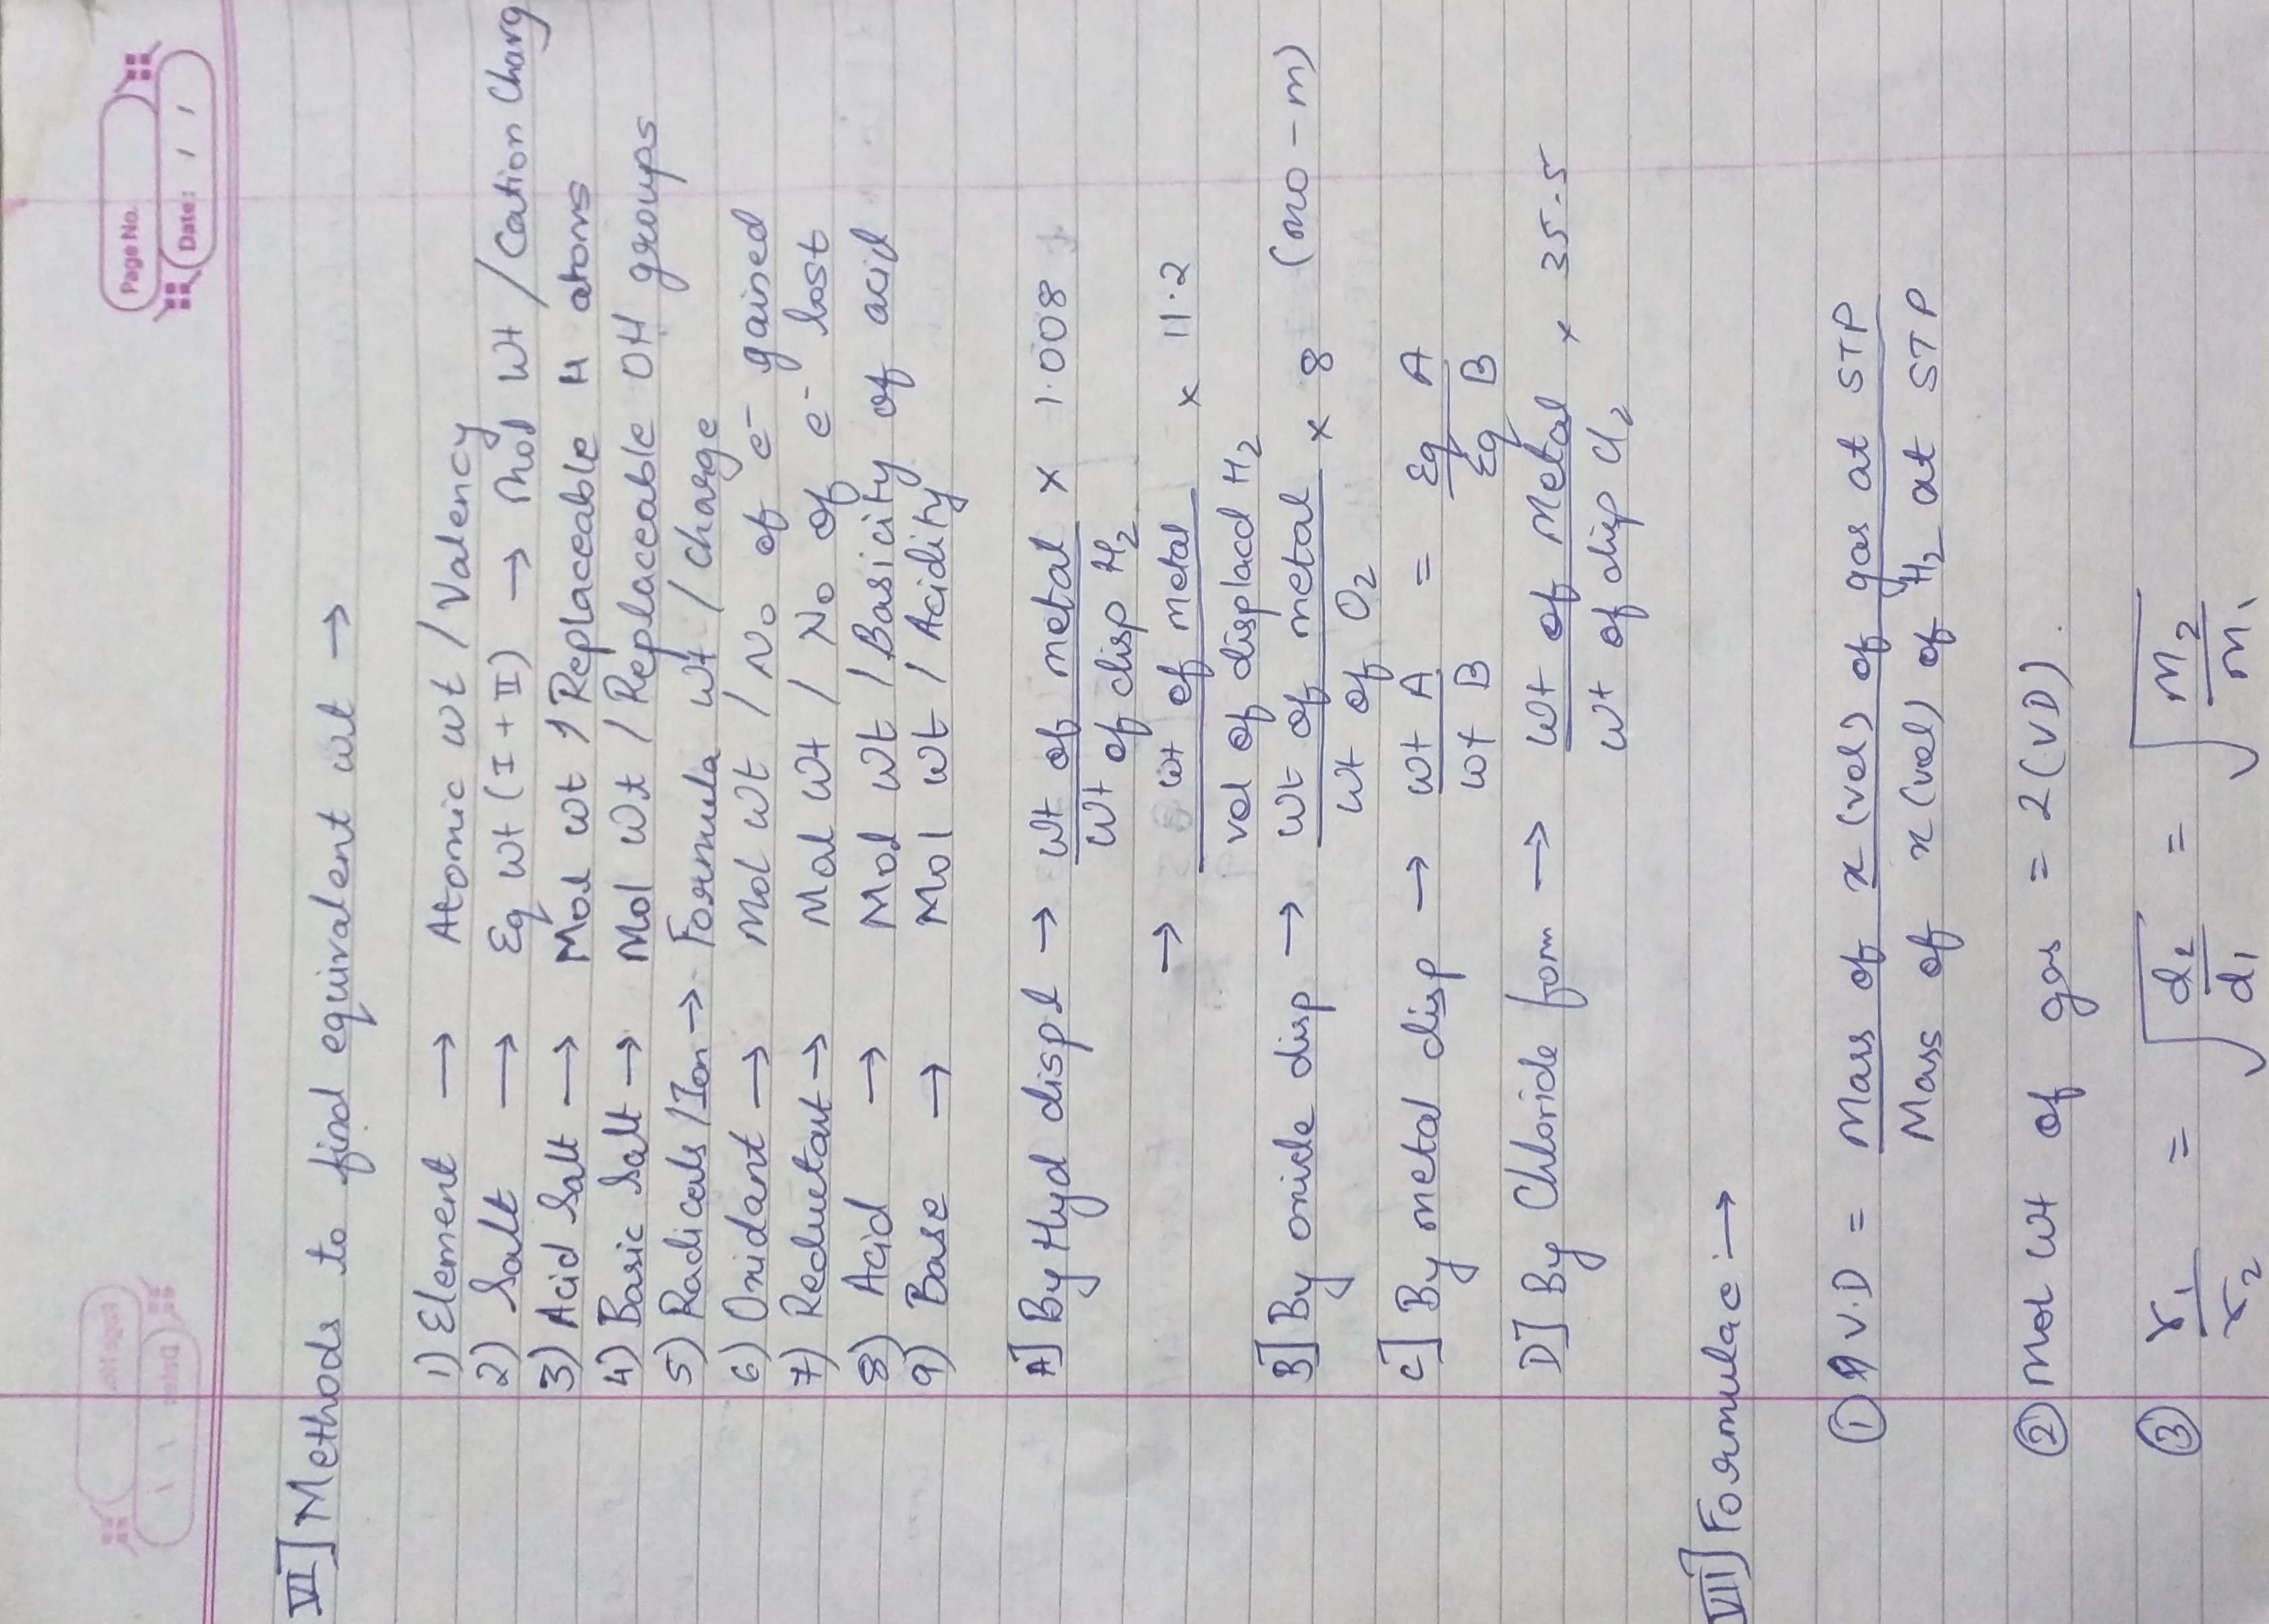 Page No.
Date: / /
VI] Methods to find equivalent wt →
1) Element → Atomic wt / Valency
2) Salt → Eq wt (I + II) → Mol wt / Cation Charg
3) Acid Salt → Mol wt / Replaceable H atoms
4) Basic Salt → Mol wt / Replaceable OH groups
5) Radicals/Ion → Formula wt / charge
6) Oxidant → Mol wt / No of e⁻ gained
7) Reductant → Mol wt / No of e⁻ lost
8) Acid → Mol wt / Basicity of acid
9) Base → Mol wt / Acidity
A] By Hyd displ → wt of metal × 1.008
wt of disp H₂
→ wt of metal × 11.2
vol of displacd H₂
B] By oxide disp → wt of metal × 8 (mo - m)
wt of O₂
C] By metal disp → wt A = Eq A
wt B Eq B
D] By Chloride form → wt of Metal × 35.5
wt of disp Cl₂
VII] Formulae :→
① V.D = Mass of x (vol) of gas at STP
Mass of x (vol) of H₂ at STP
② Mol wt of gas = 2 (VD).
③ r₁ = √ d₂ = √ M₂
r₂ d₁ M₁